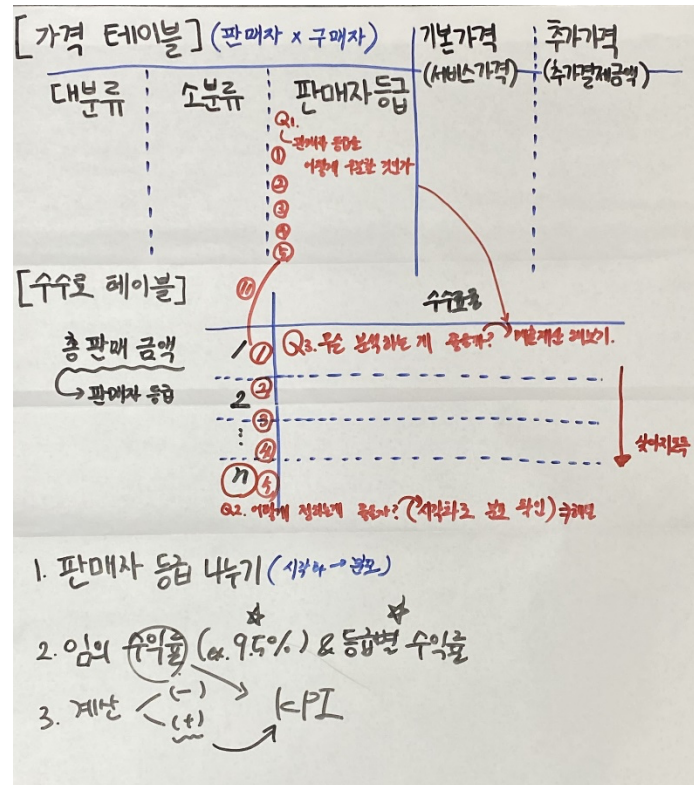 [가격 테이블] (판매자 x 구매자)
기본가격
(서비스가격)
추가가격
(추가결제금액)
대분류
소분류
판매자등급
Q1.
판매자 등급을
어떻게 구분할 것인가
①
②
③
④
⑤
[수수료 테이블]
수수료율
총 판매 금액
→ 판매자 등급
1 ①
Q3. 무슨 분석하는 게 좋을까?
매출계산 해보기.
2 ②
⋮ ③
④
n 5
낮아지도록
Q2. 어떻게 정하는게 좋을까? (시각화로 분포 확인)
1. 판매자 등급 나누기 (시각화→분포)
2. 임의 수익률 (ex. 95%) & 등급별 수익률
3. 계산 (-)
(+)
KPI